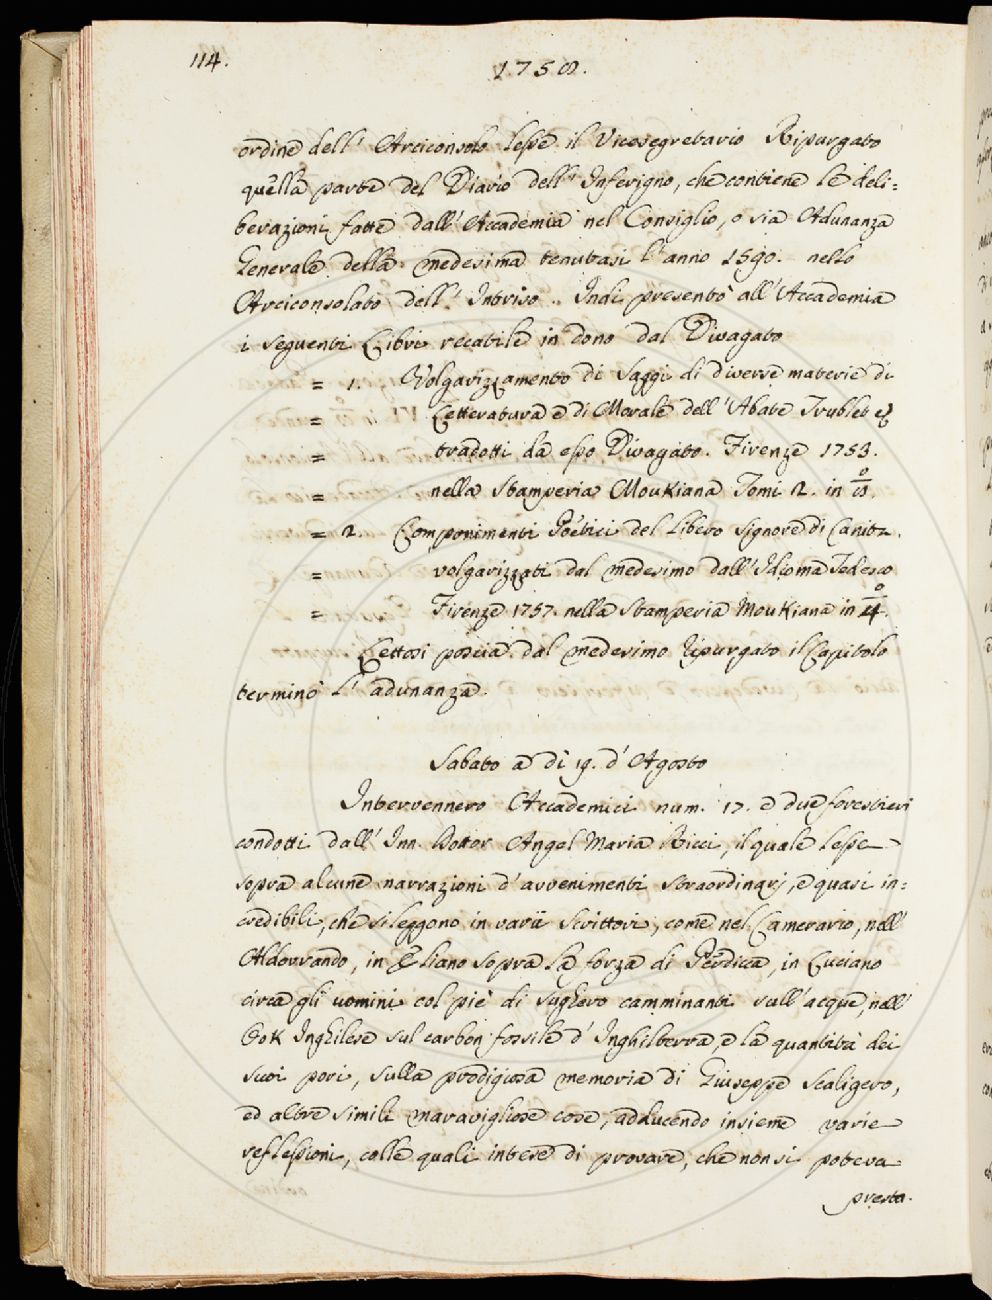 114.
1758.
ordine dell' Arciconsolo lesse il Vicesegretario Ripurgato
quella parte del Diario dell' Inferigno, che contiene le deli=
berazioni fatte dall' Accademia nel Consiglio, o sia Adunanza
Generale della medesima tenutasi l' anno 1590. nello
Arciconsolato dell' Intriso. Indi presentò all' Accademia
i seguenti Libri recatile in dono dal Divagato
= 1. Volgarizzamento di Saggi di diverse materie di
= Letteratura e di Morale dell' Abate Trublet
= tradotti da esso Divagato. Firenze 1753.
= nella Stamperia Moukiana Tomi 2. in
= 2. Componimenti Poetici del Libero Signore di Canitz.
= volgarizzati dal medesimo dall' Idioma Tedesco
= Firenze 1757. nella Stamperia Moukiana in 4.o
Lettosi poscia dal medesimo Ripurgato il Capitolo
terminò l' adunanza.
Sabato a dì 19. d' Agosto
Intervennero Accademici num. 17. e due forestieri
condotti dall' Inn. Dottor Angel Maria Ricci, il quale lesse
sopra alcune narrazioni d' avvenimenti straordinarj, e quasi in=
credibili, che si leggono in varii Scrittori, come nel Camerario, nell'
Aldovrando, in Eliano sopra la forza di Perdica, in Luciano
circa gli uomini col piè di sughero camminanti sull' acque, nell'
Ook Inghilese sul carbon fossile d' Inghilterra, e la quantità dei
suoi pori, sulla prodigiosa memoria di Giuseppe Scaligero,
ed altre simili maravigliose cose, adducendo insieme varie
reflessioni, colle quali intese di provare, che non si poteva
presta.